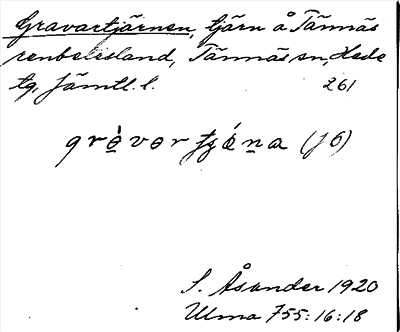 Gravartjärnen, tjärn å Tännäs
renbetesland, Tännäs sn, Hede
tg, Jämtl. l. 261
(J6)
S. Åsander 1920
Ulma 755:16:18